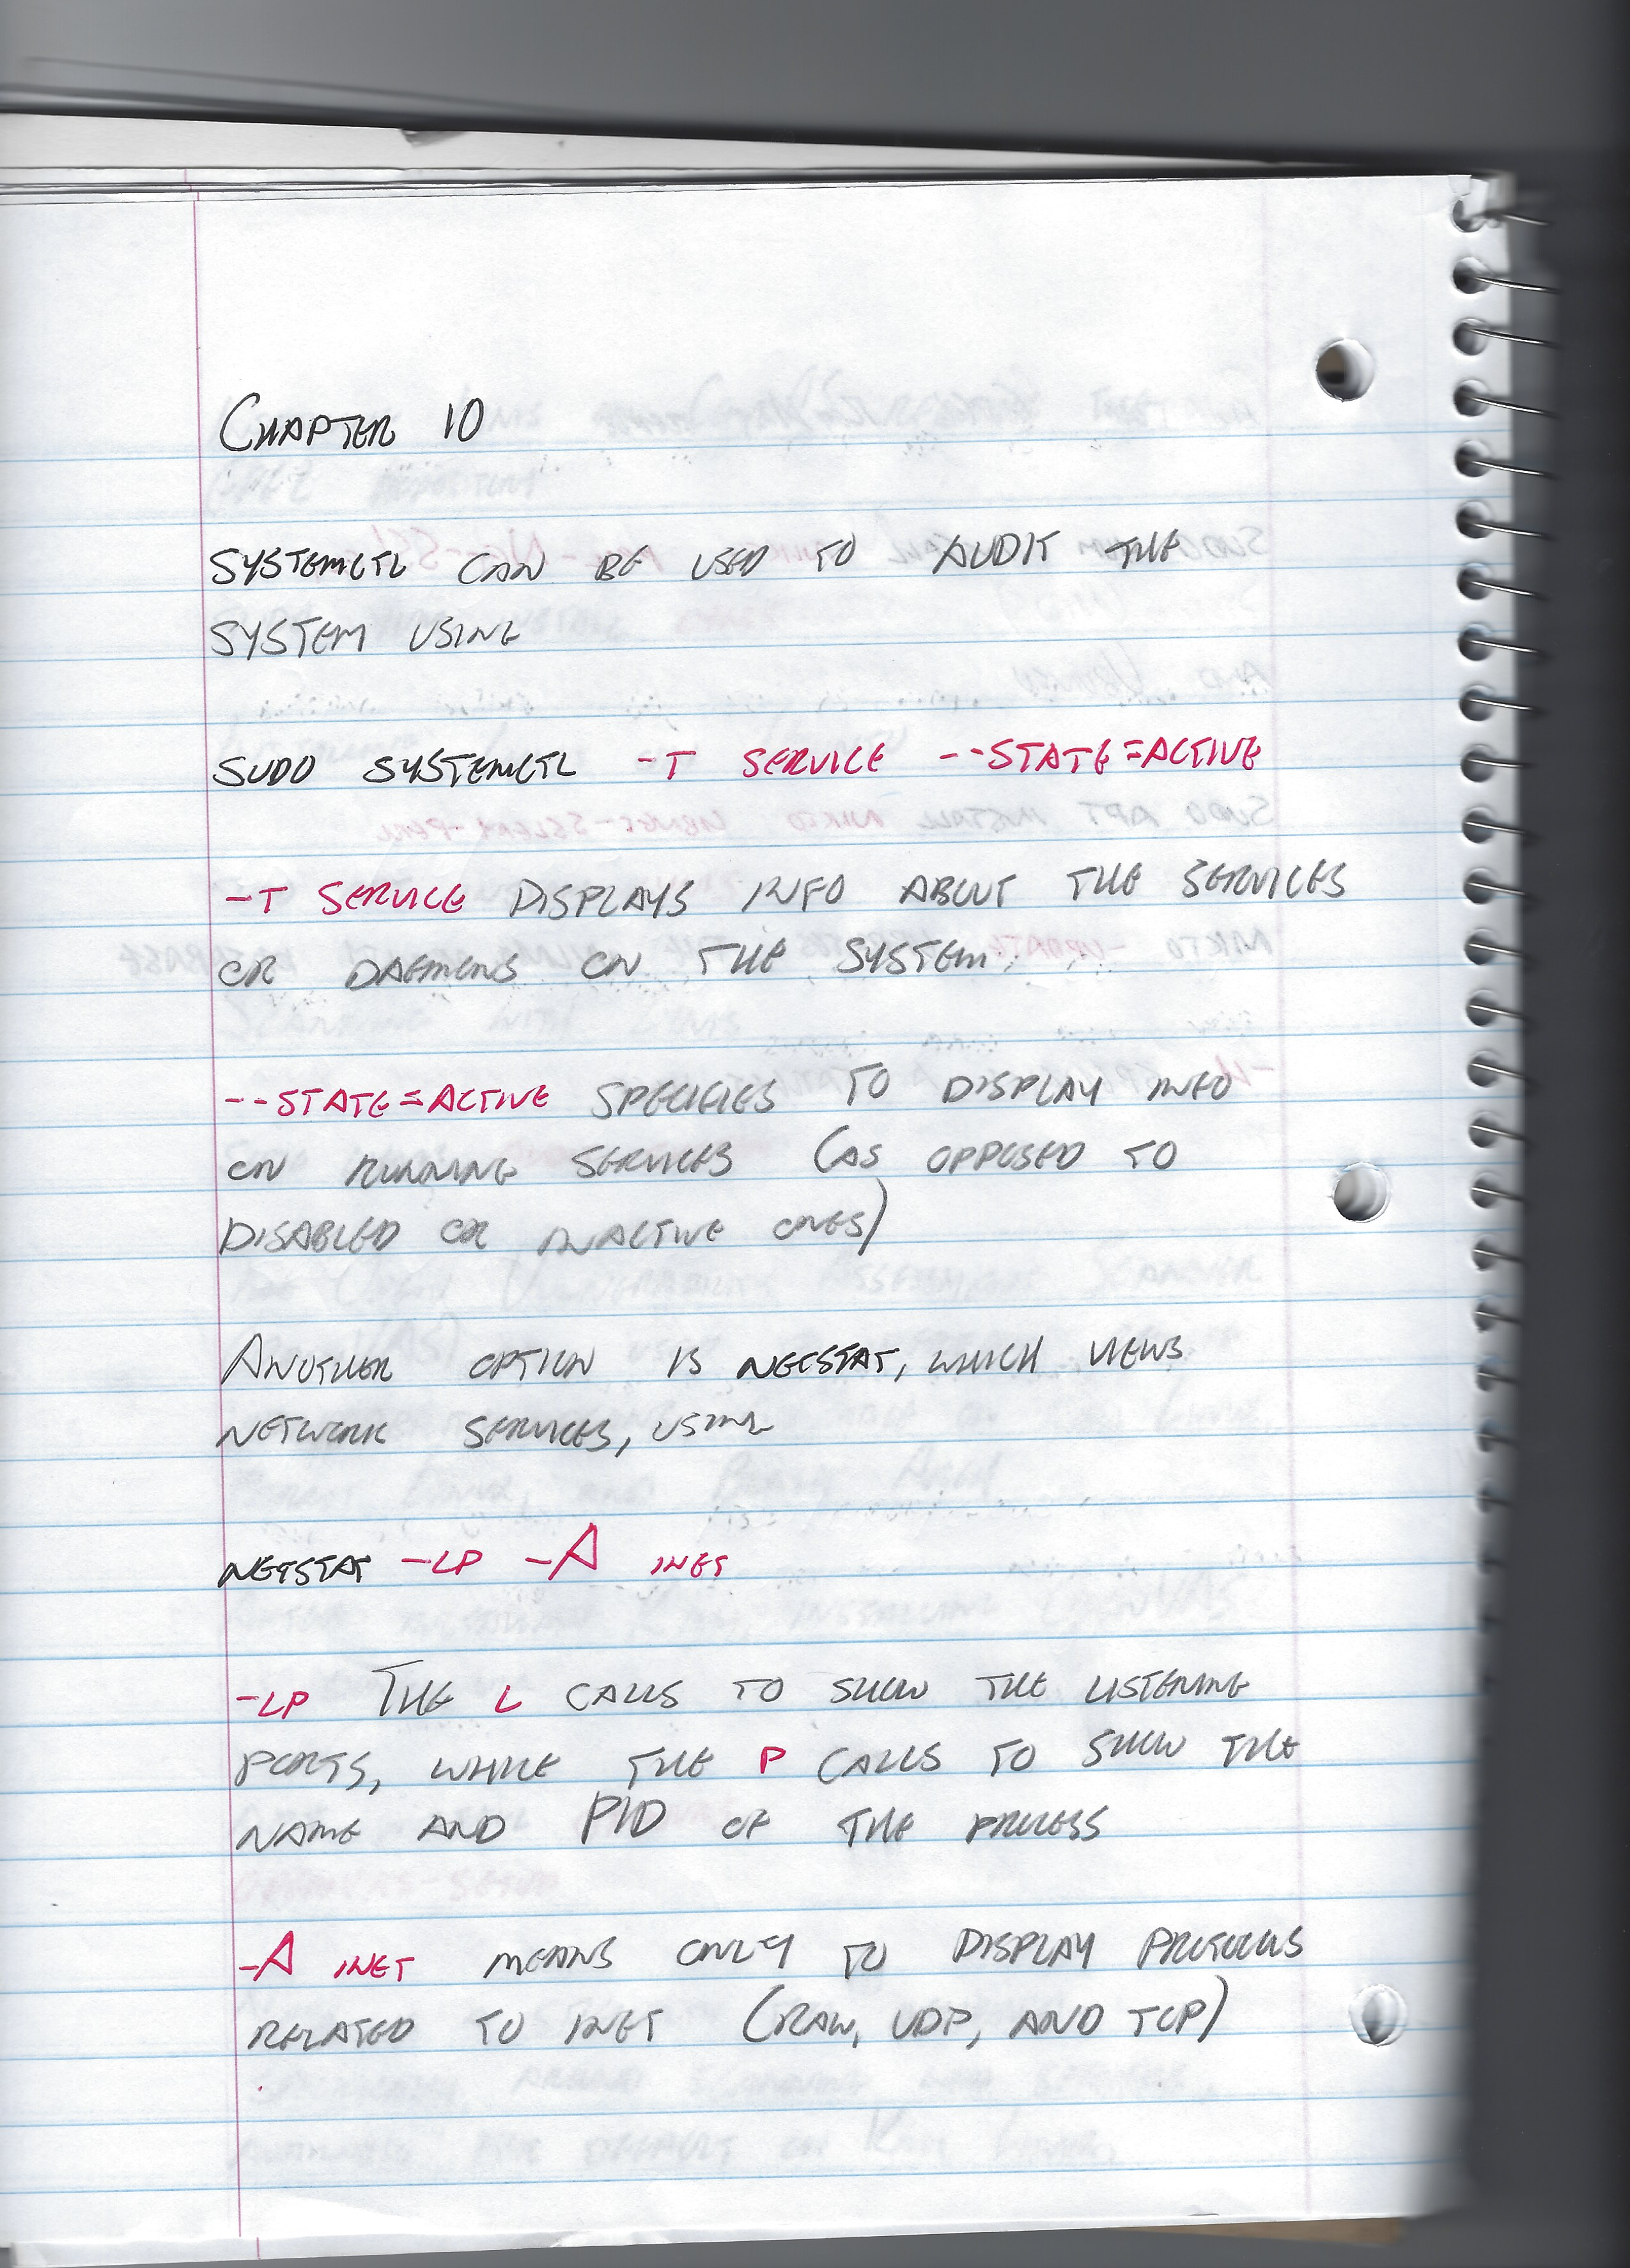 CHAPTER 10
SYSTEMCTL CAN BE USED TO AUDIT THE
SYSTEM USING
SUDO SYSTEMCTL -T SERVICE --STATE=ACTIVE
-T SERVICE DISPLAYS INFO ABOUT THE SERVICES
OR DAEMONS ON THE SYSTEM.
--STATE=ACTIVE SPECIFIES TO DISPLAY INFO
ON RUNNING SERVICES (AS OPPOSED TO
DISABLED OR INACTIVE ONES)
ANOTHER OPTION IS NETSTAT, WHICH VIEWS
NETWORK SERVICES, USING
NETSTAT -LP -A INET
-LP THE L CALLS TO SHOW THE LISTENING
PORTS, WHILE THE P CALLS TO SHOW THE
NAME AND PID OF THE PROCESS
-A INET MEANS ONLY TO DISPLAY PROTOCOLS
RELATED TO INET (RAW, UDP, AND TCP)